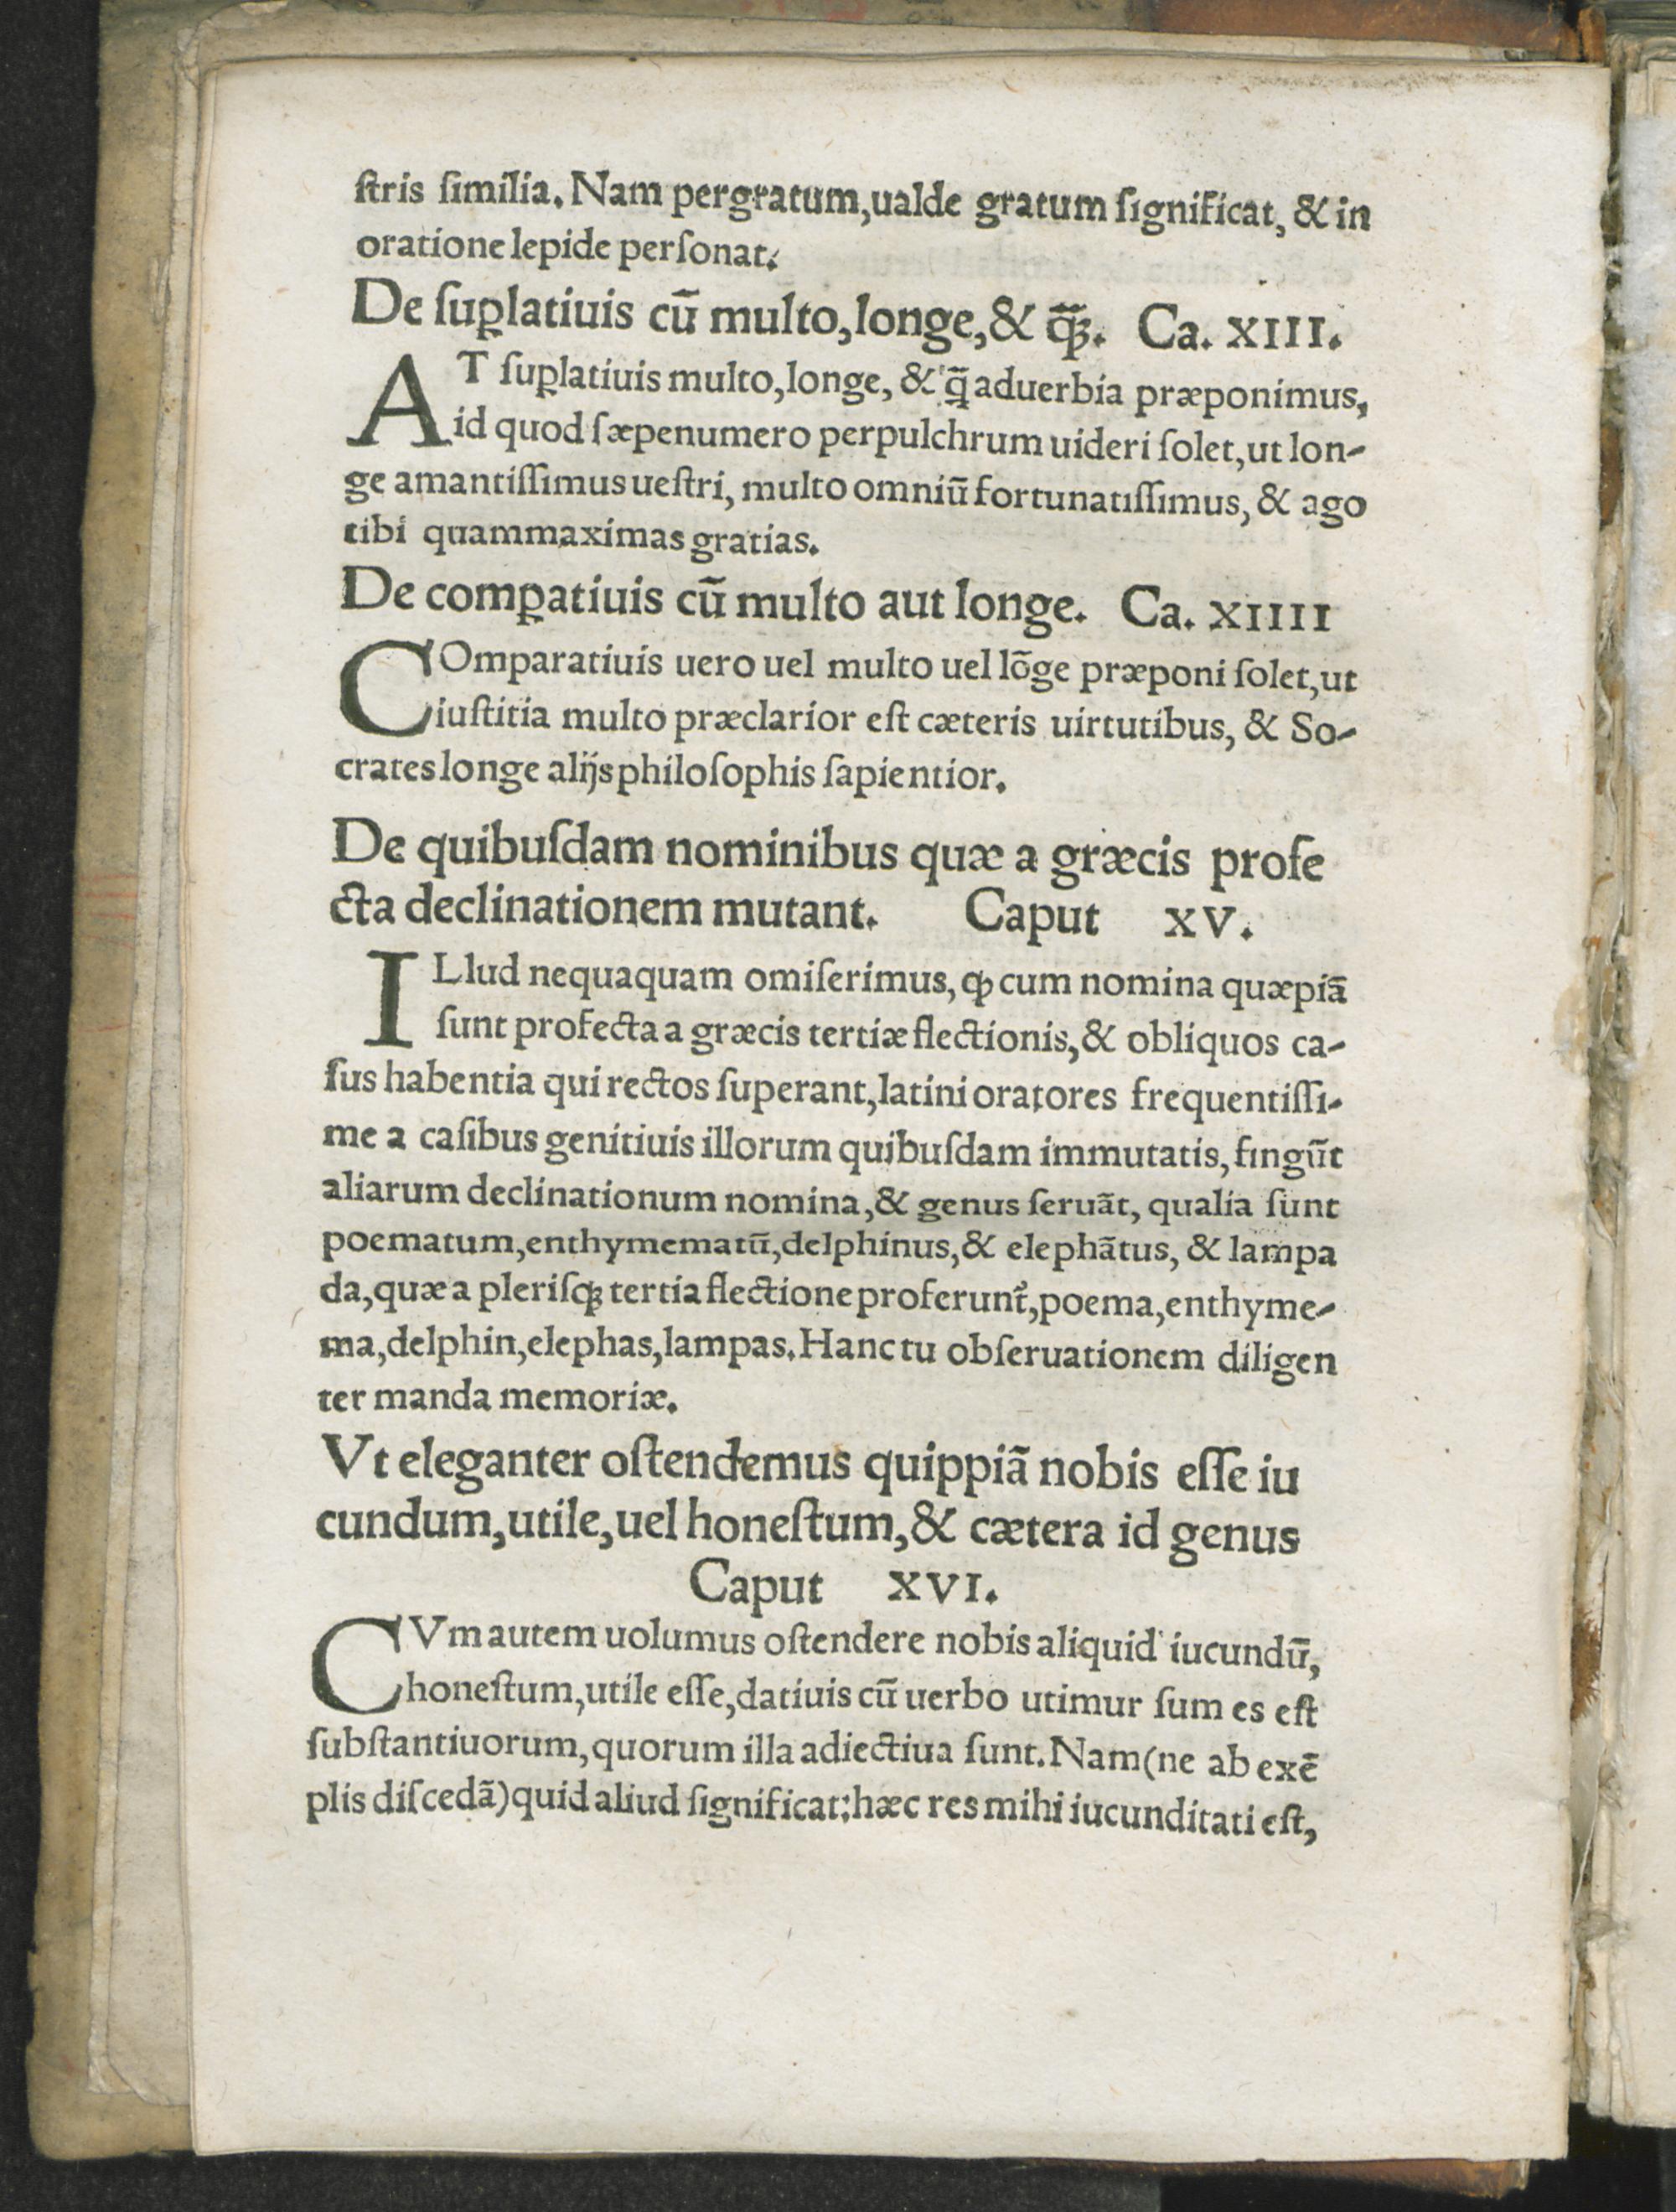 ſtris ſimilia. Nam pergratum, ualde gratum ſignificat, & in
oratione lepide perſonat.
De ſuꝑlatiuis cū multo, longe, & q̄ꝫ. Ca. XIII.
AT ſuꝑlatiuis multo, longe, & q̄ aduerbia præponimus,
id quod ſæpenumero perpulchrum uideri ſolet, ut lon-
ge amantiſſimus ueſtri, multo omniū fortunatiſſimus, & ago
tibi quammaximas gratias.
De comꝑatiuis cū multo aut longe. Ca. XIIII
COmparatiuis uero uel multo uel lōge præponi ſolet, ut
iuſtitia multo præclarior eſt cæteris uirtutibus, & So-
crates longe alijs philoſophis ſapientior.
De quibuſdam nominibus quæ a græcis profe
cta declinationem mutant. Caput XV.
ILlud nequaquam omiſerimus, ꝙ cum nomina quæpiā
ſunt profecta a græcis tertiæ flectionis, & obliquos ca-
ſus habentia qui rectos ſuperant, latini oratores frequentiſſi-
me a caſibus genitiuis illorum quibuſdam immutatis, fingūt
aliarum declinationum nomina, & genus ſeruāt, qualia ſunt
poematum, enthymematū, delphinus, & elephātus, & lampa
da, quæ a pleriſqꝫ tertia flectione proferunt᷑, poema, enthyme-
ma, delphin, elephas, lampas. Hanc tu obſeruationem diligen
ter manda memoriæ.
Vt eleganter oſtendemus quippiā nobis eſſe iu
cundum, utile, uel honeſtum, & cætera id genus
Caput XVI.
CVm autem uolumus oſtendere nobis aliquid iucundū,
honeſtum, utile eſſe, datiuis cū uerbo utimur ſum es eſt
ſubſtantiuorum, quorum illa adiectiua ſunt. Nam (ne ab exē
plis diſcedā) quid aliud ſignificat: hæc res mihi iucunditati eſt,